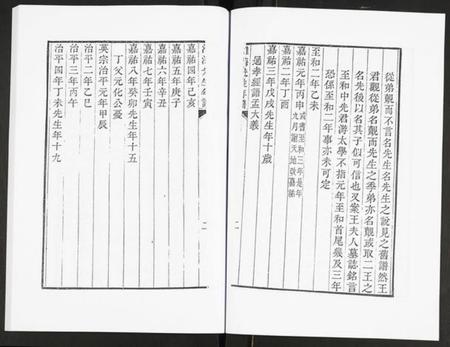 從弟覿而不言名先生名先生之說見之舊譜然王
君觀從弟名覿而先生之季弟亦名覿或取二王之
名先後以名其子似可信也又案王夫人墓誌銘言
至和中先君游太學不指元年至和首尾幾及三年
恐係至和二年事亦未可定
至和二年乙未
嘉祐元年丙申 或書至和三年是年
九月謝天地改嘉祐
嘉祐二年丁酉
嘉祐三年戊戌先生年十歲
是孝經語孟大義
嘉祐四年己亥
嘉祐五年庚子
嘉祐六年辛丑
嘉祐七年壬寅
嘉祐八年癸卯先生年十五
丁父元化公憂
英宗治平元年甲辰
治平二年乙巳
治平三年丙午
治平四年丁未先生年十九
二